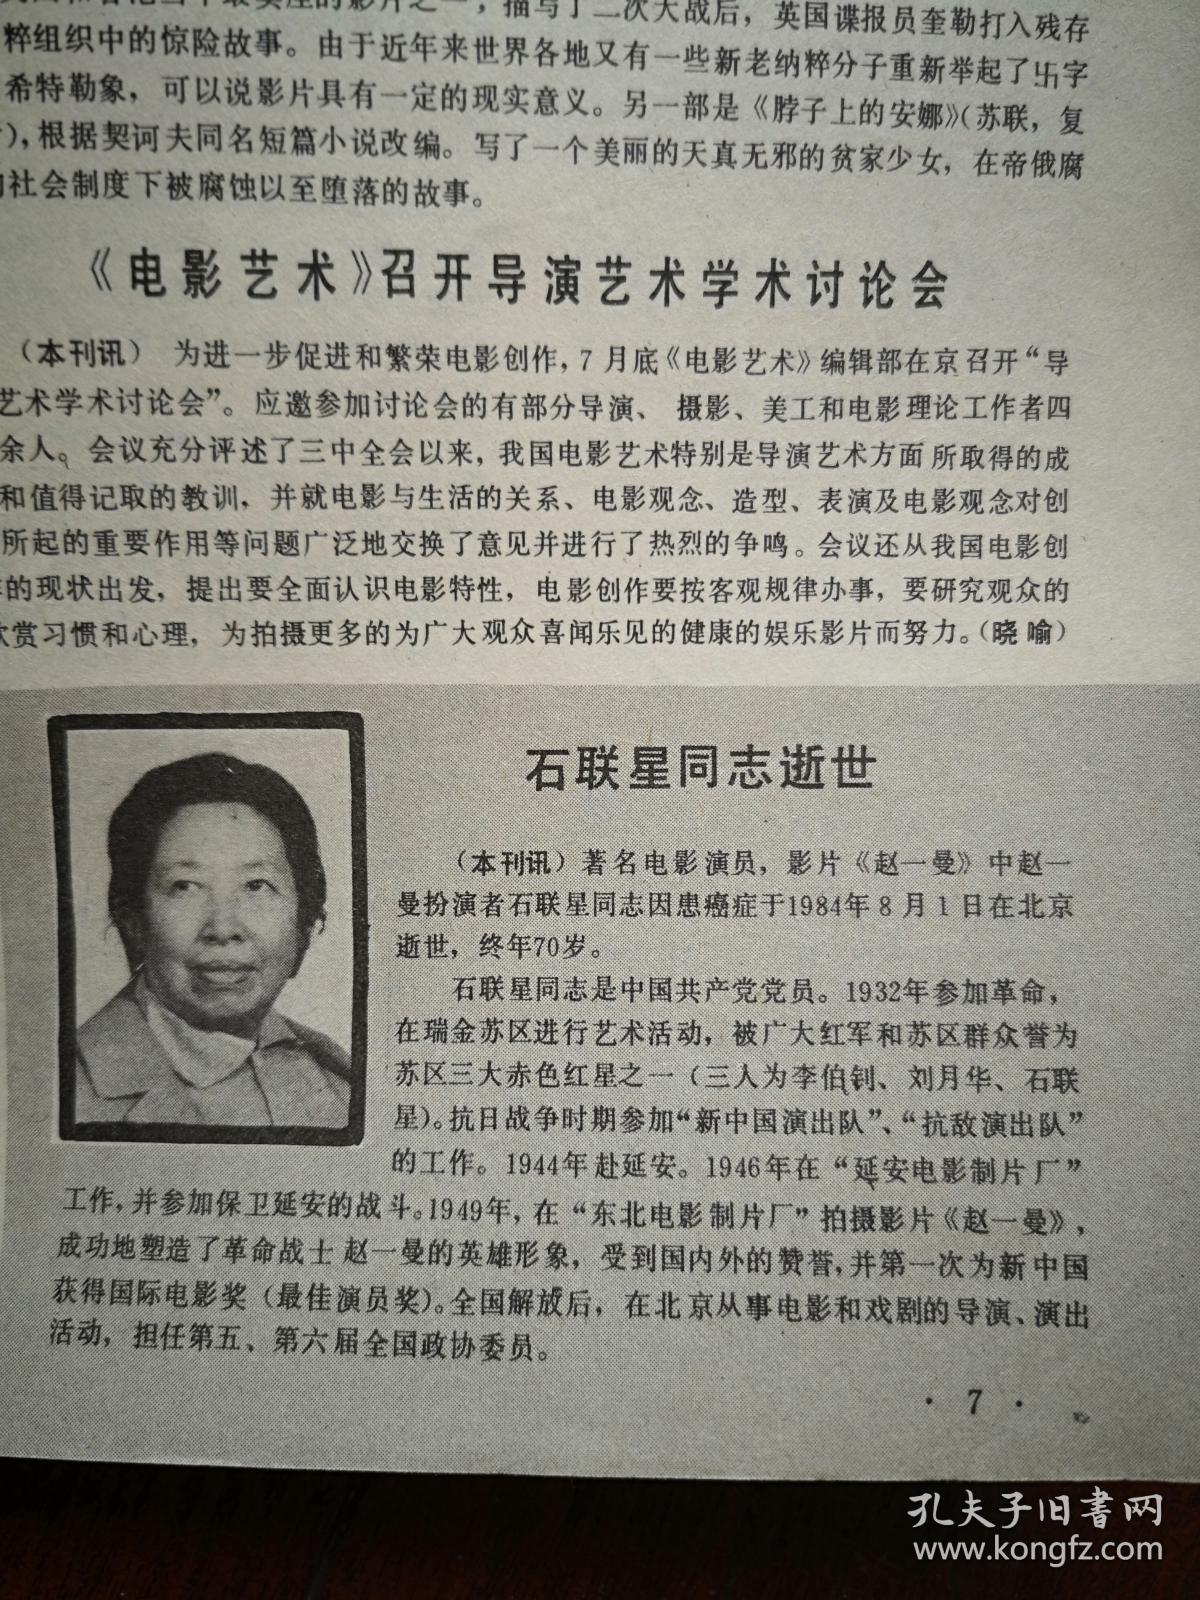 最卖座的影片之一，描写了二次大战后，英国谍报员奎勒打入残存
粹组织中的惊险故事。由于近年来世界各地又有一些新老纳粹分子重新举起了卐字
希特勒象，可以说影片具有一定的现实意义。另一部是《脖子上的安娜》（苏联，复
），根据契诃夫同名短篇小说改编。写了一个美丽的天真无邪的贫家少女，在帝俄腐
社会制度下被腐蚀以至堕落的故事。
《电影艺术》召开导演艺术学术讨论会
（本刊讯） 为进一步促进和繁荣电影创作，7月底《电影艺术》编辑部在京召开“导
艺术学术讨论会”。应邀参加讨论会的有部分导演、摄影、美工和电影理论工作者四
余人。会议充分评述了三中全会以来，我国电影艺术特别是导演艺术方面所取得的成
和值得记取的教训，并就电影与生活的关系、电影观念、造型、表演及电影观念对创
所起的重要作用等问题广泛地交换了意见并进行了热烈的争鸣。会议还从我国电影创
的现状出发，提出要全面认识电影特性，电影创作要按客观规律办事，要研究观众的
欣赏习惯和心理，为拍摄更多的为广大观众喜闻乐见的健康的娱乐影片而努力。（晓喻）
石联星同志逝世
（本刊讯）著名电影演员，影片《赵一曼》中赵一
曼扮演者石联星同志因患癌症于1984年8月1日在北京
逝世，终年70岁。
石联星同志是中国共产党党员。1932年参加革命，
在瑞金苏区进行艺术活动，被广大红军和苏区群众誉为
苏区三大赤色红星之一（三人为李伯钊、刘月华、石联
星）。抗日战争时期参加“新中国演出队”、“抗敌演出队”
的工作。1944年赴延安。1946年在“延安电影制片厂”
工作，并参加保卫延安的战斗。1949年，在“东北电影制片厂”拍摄影片《赵一曼》，
成功地塑造了革命战士赵一曼的英雄形象，受到国内外的赞誉，并第一次为新中国
获得国际电影奖（最佳演员奖）。全国解放后，在北京从事电影和戏剧的导演、演出
活动，担任第五、第六届全国政协委员。
·7·
孔夫子旧书网
www.kongfz.com